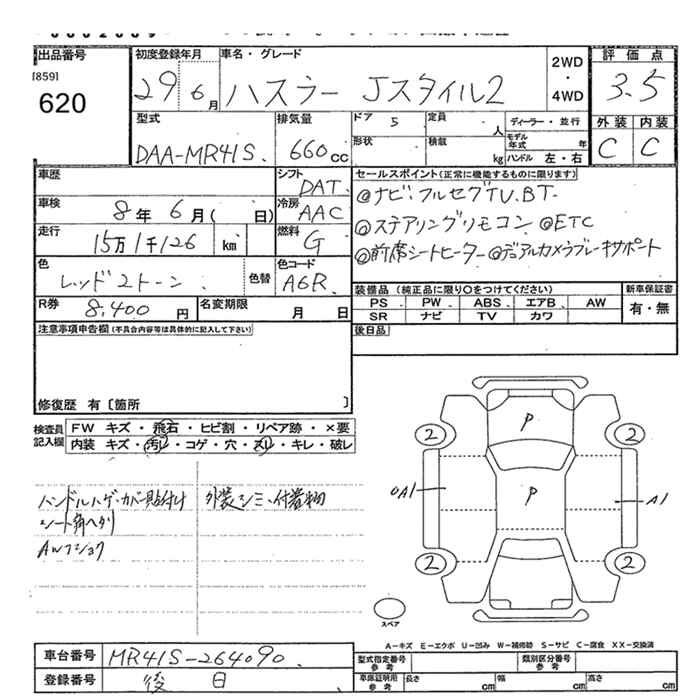 出品番号
[859]
620
初度登録年月
29年6月
車名・グレード
ハスラー Jスタイル2
2WD
・
4WD
評価点
3.5
外装 内装
C C
型式
DAA-MR41S
排気量
660cc
ドア 5
形状
定員 人
積載 kg
ディーラー・並行
モデル年式 年
ハンドル 左・右
車歴
シフト
DAT
車検
8年6月(日)
冷房
AAC
走行
15万1千126 km
燃料
G
色
レッド2トーン
色替
色コード
A6R
R券
8,400円
名変期限
月 日
セールスポイント(正常に機能するものに限ります)
@ナビ・フルセグTV.BT
@ステアリングリモコン @ETC
@前席シートヒーター @デュアルカメラブレーキサポート
装備品(純正品に限り○をつけてください)
PS PW ABS エアB AW
SR ナビ TV カワ
新車保証書
有・無
後日品
注意事項申告欄(不具合内容等は具体的に記入して下さい)
修復歴 有〔箇所 〕
検査員記入欄
FW キズ・飛石・ヒビ割・リペア跡・×要
内装 キズ・汚レ・コゲ・穴・スレ・キレ・破レ
ハンドルハゲ・カバー貼付け
シート角ヘタリ
AWフショク
外装シミ・付着物
P
2 2
0A1 P A1
2 2
スペア
A-キズ E-エクボ U-凹み W-補修跡 S-サビ C-腐食 XX-交換済
車台番号
MR41S-264090
登録番号
後日
型式指定番号
参考
類別区分番号
参考
車庫証明用
参考
長さ cm 幅 cm 高さ cm